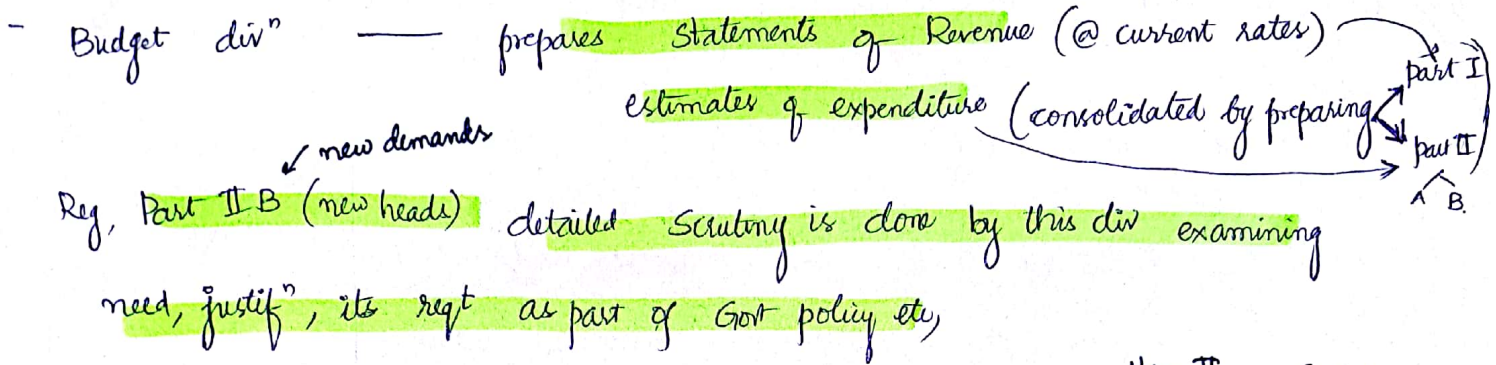 - Budget divⁿ — prepares Statements of Revenue (@ current rates)
part I
estimates of expenditure (consolidated by preparing
part II)
A B.
new demands
Reg, Part II B (new heads) detailed Scrutiny is done by this div examining
need, justifⁿ, its reqt as part of Govt policy etc,